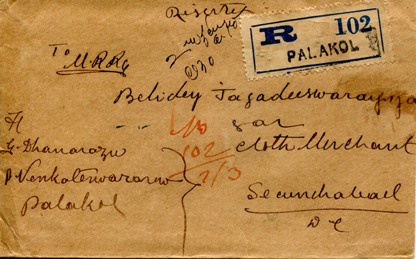 Registered
R 102
PALAKOL
To M.R.Ry
Belidey Jagadeeswarayya
gar
Cloth Merchant
Secunderabad
D-C
G. Dhanarazu
P. Venkateswararow
Palakol
102
2/3